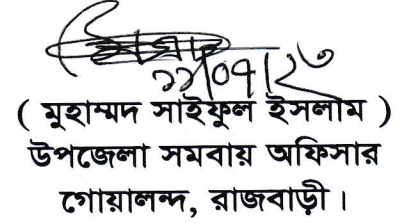 ১১/০৭/২৩
( মুহাম্মদ সাইফুল ইসলাম )
উপজেলা সমবায় অফিসার
গোয়ালন্দ, রাজবাড়ী ।